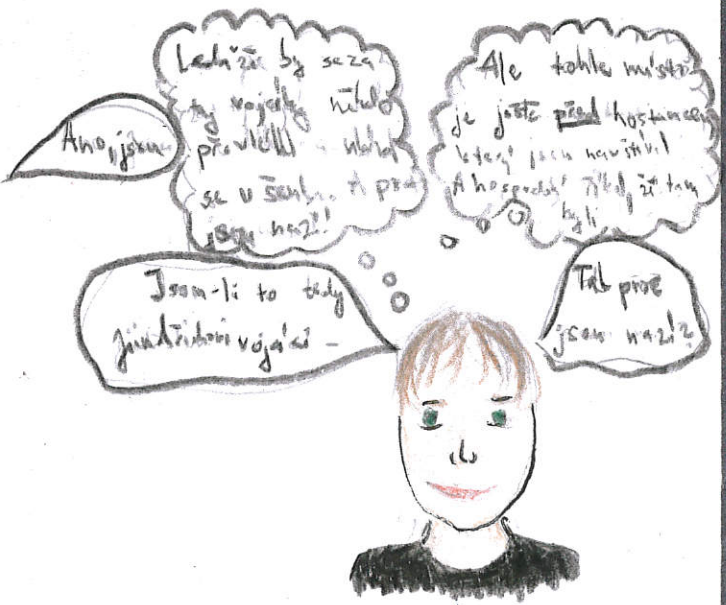 Ano, jsou
Ledaže by se za
ty vojáky někdo
převlékl a
se v A proč
jsou nazí!
Ale tohle místo
je ještě před hostincem,
který jsem navštívil
A hospodský říkal, že tam
byli
Jsou-li to tedy
jindřichovi vojáci –
Tak proč
jsou nazí?